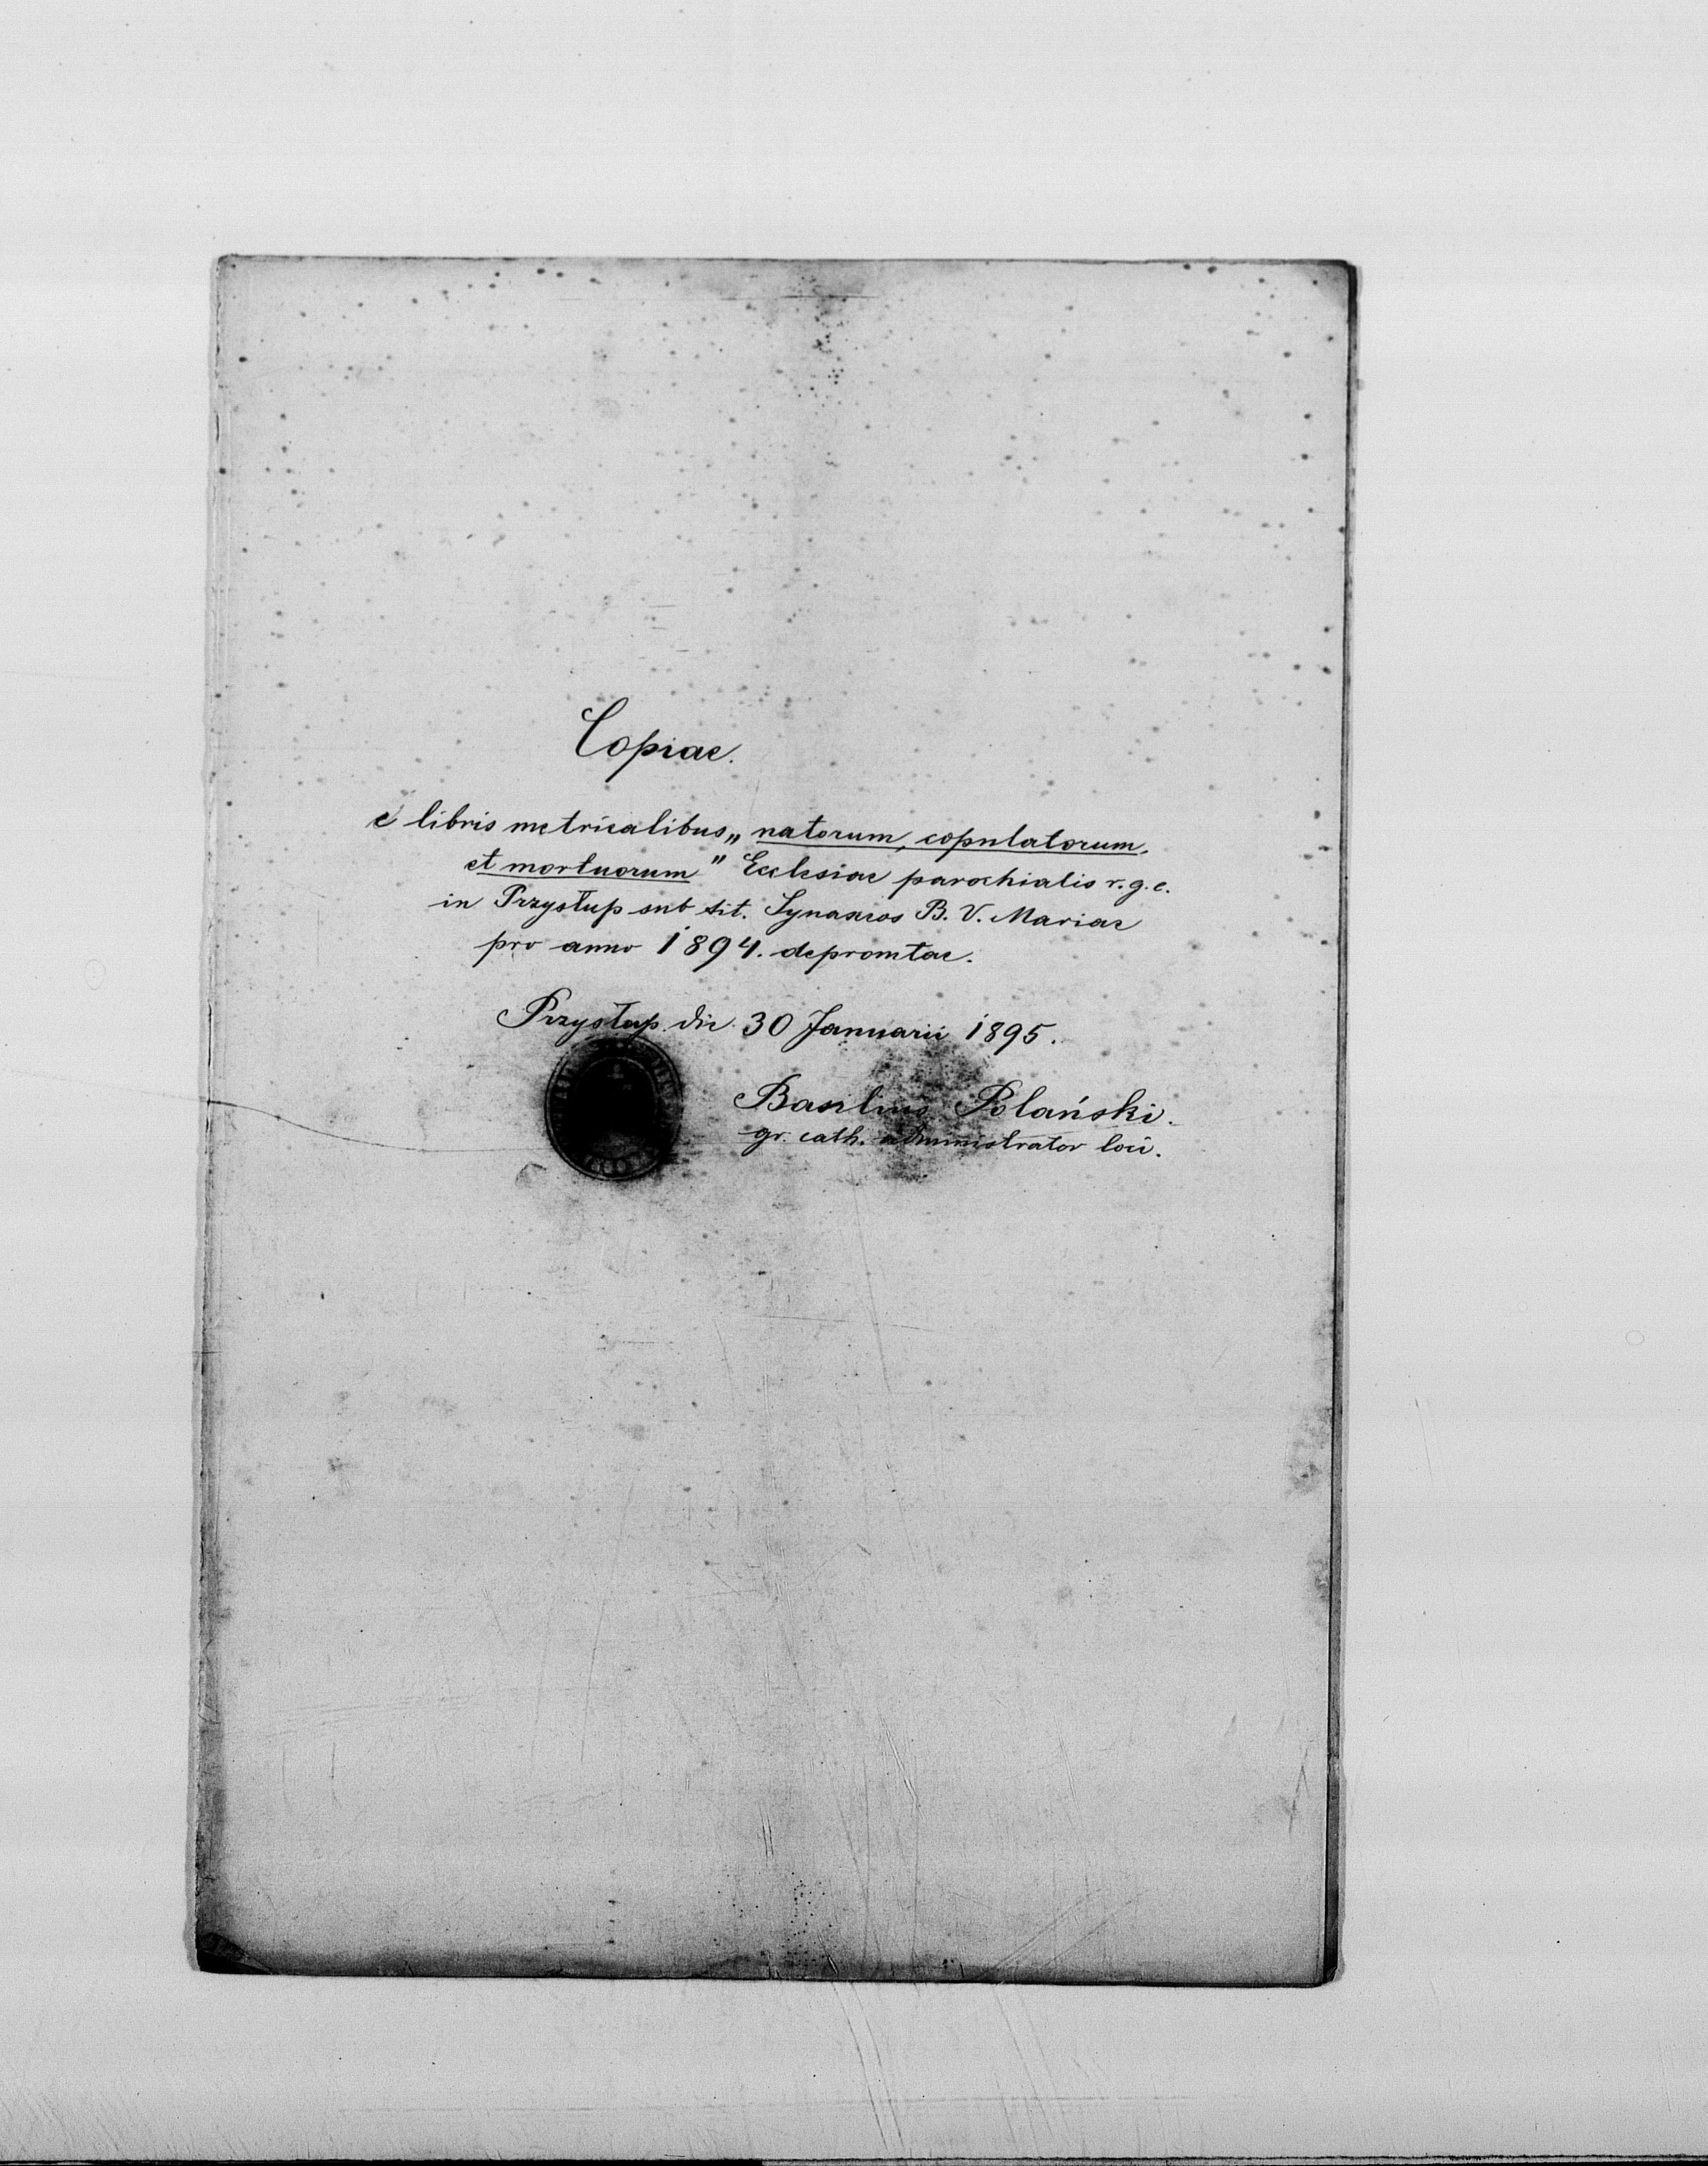 Copiae.
e libris metricalibus „natorum, copulatorum,
et mortuorum" Ecclesiae parochialis r. g. c.
in Przysłup sub tit. Synaxeos B. V. Mariae
pro anno 1894. depromtae.
Przysłup die 30 Januarii 1895.
Basilius Polański.
gr. cath. administrator loci.